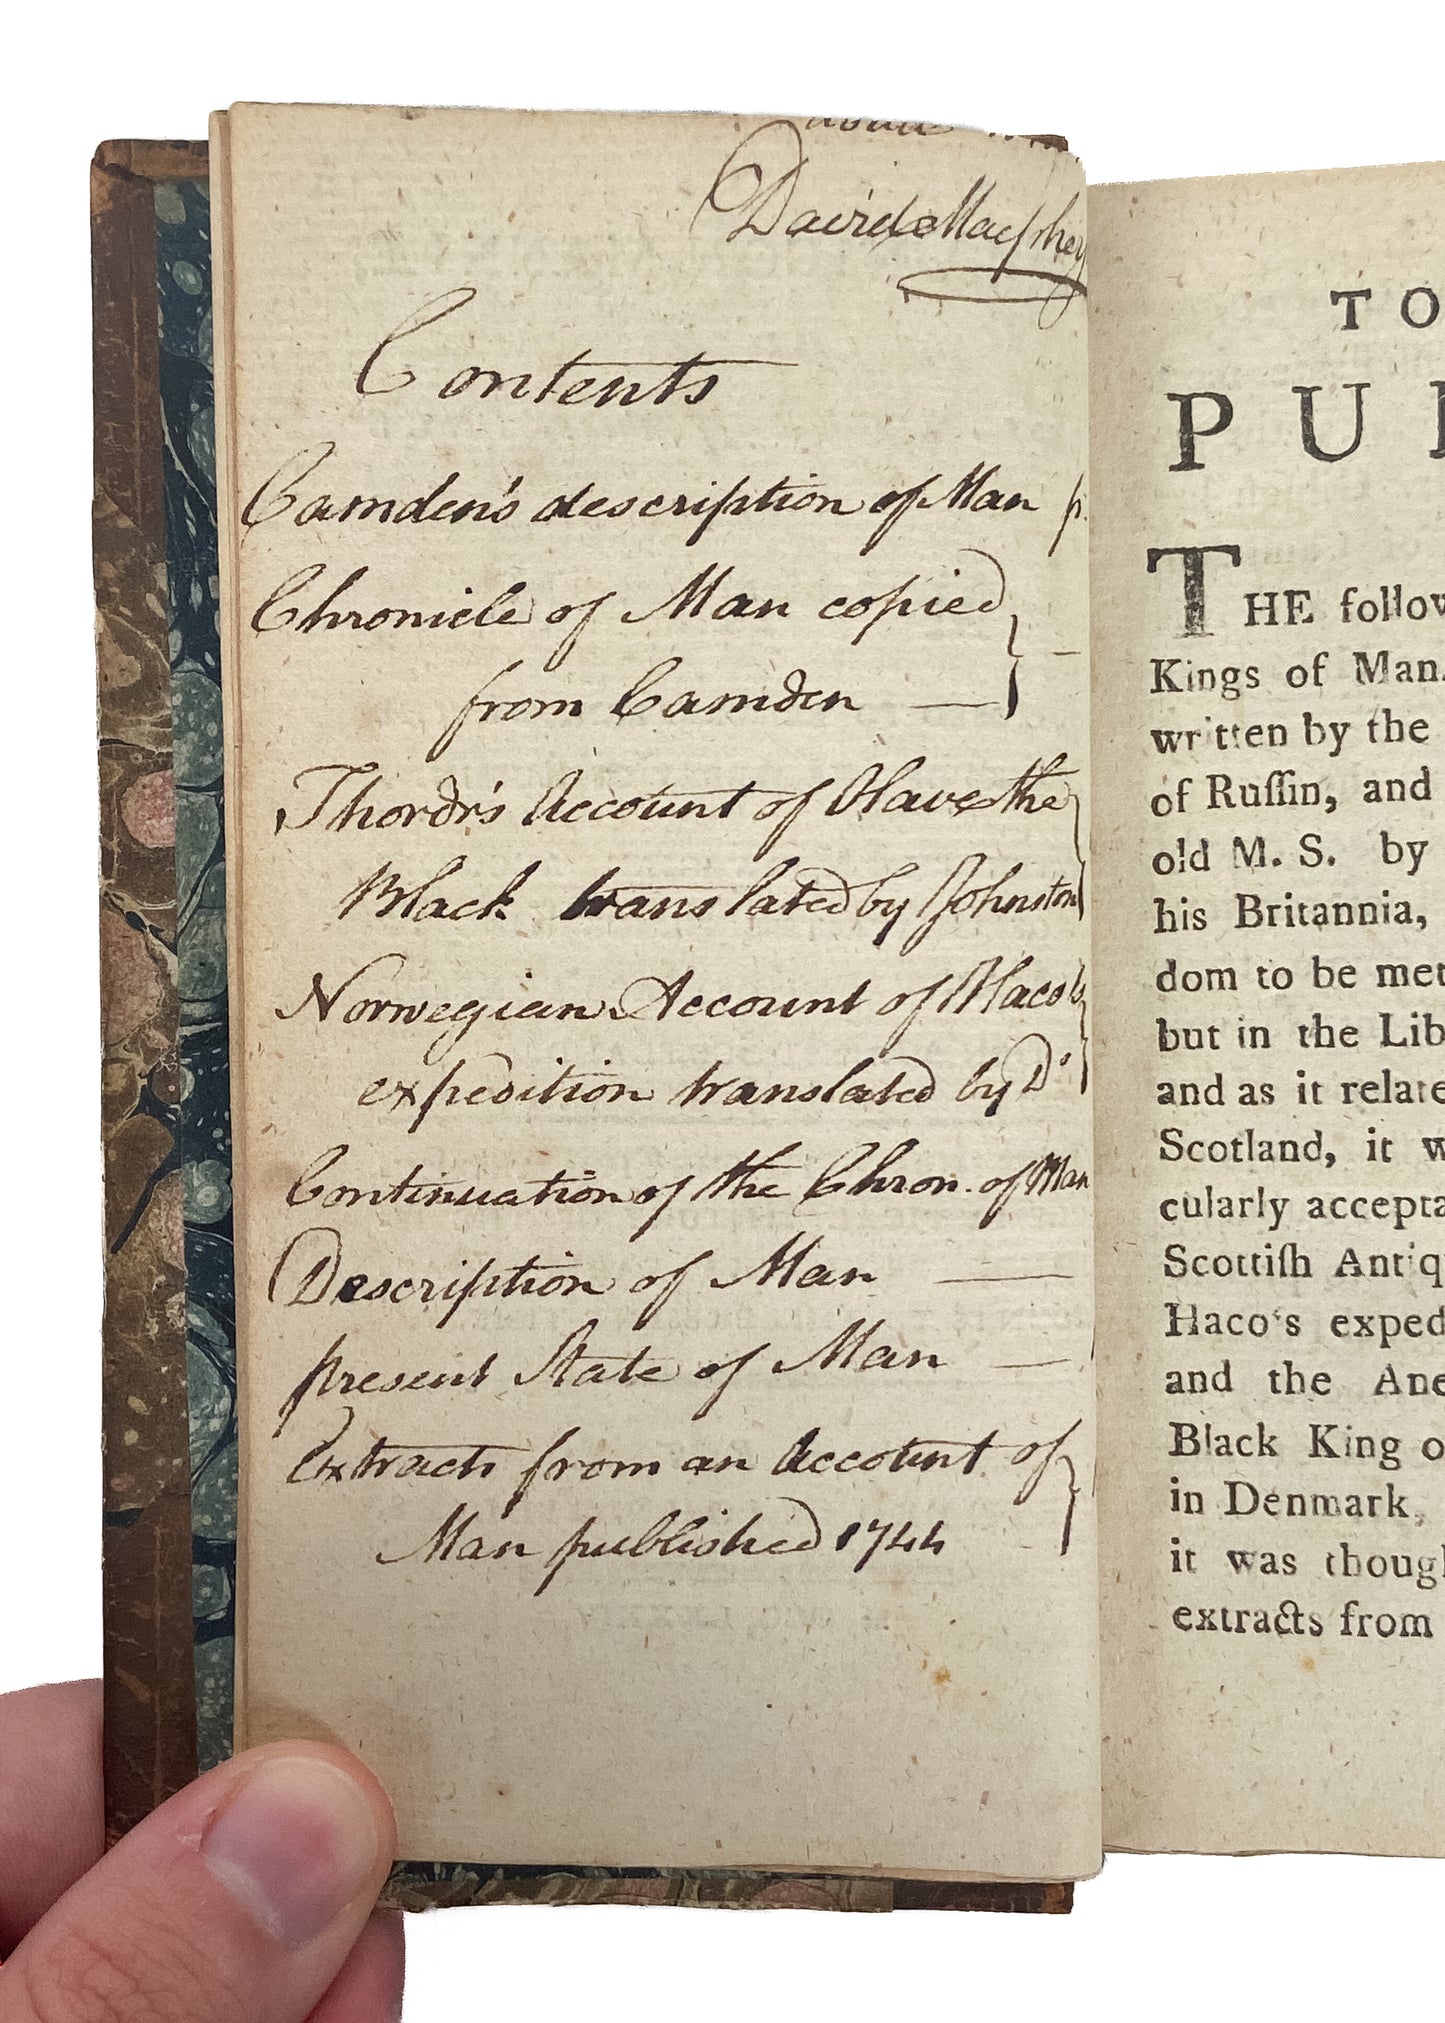 David Macpher
Contents
Camden's description of Man p.
Chronicle of Man copied
from Camden —
Thordr's Account of Olave the
Black translated by Johnston
Norwegian Account of Haco's
expedition translated by Dº
Continuation of the Chron. of Man
Description of Man —
present State of Man —
Extracts from an Account of
Man published 1744
TO
PU
THE follow
Kings of Man
written by the
of Ruſſin, and
old M. S. by
his Britannia,
dom to be met
but in the Lib
and as it relate
Scotland, it w
cularly accepta
Scottiſh Antiq
Haco's exped
and the Ane
Black King o
in Denmark,
it was though
extracts from